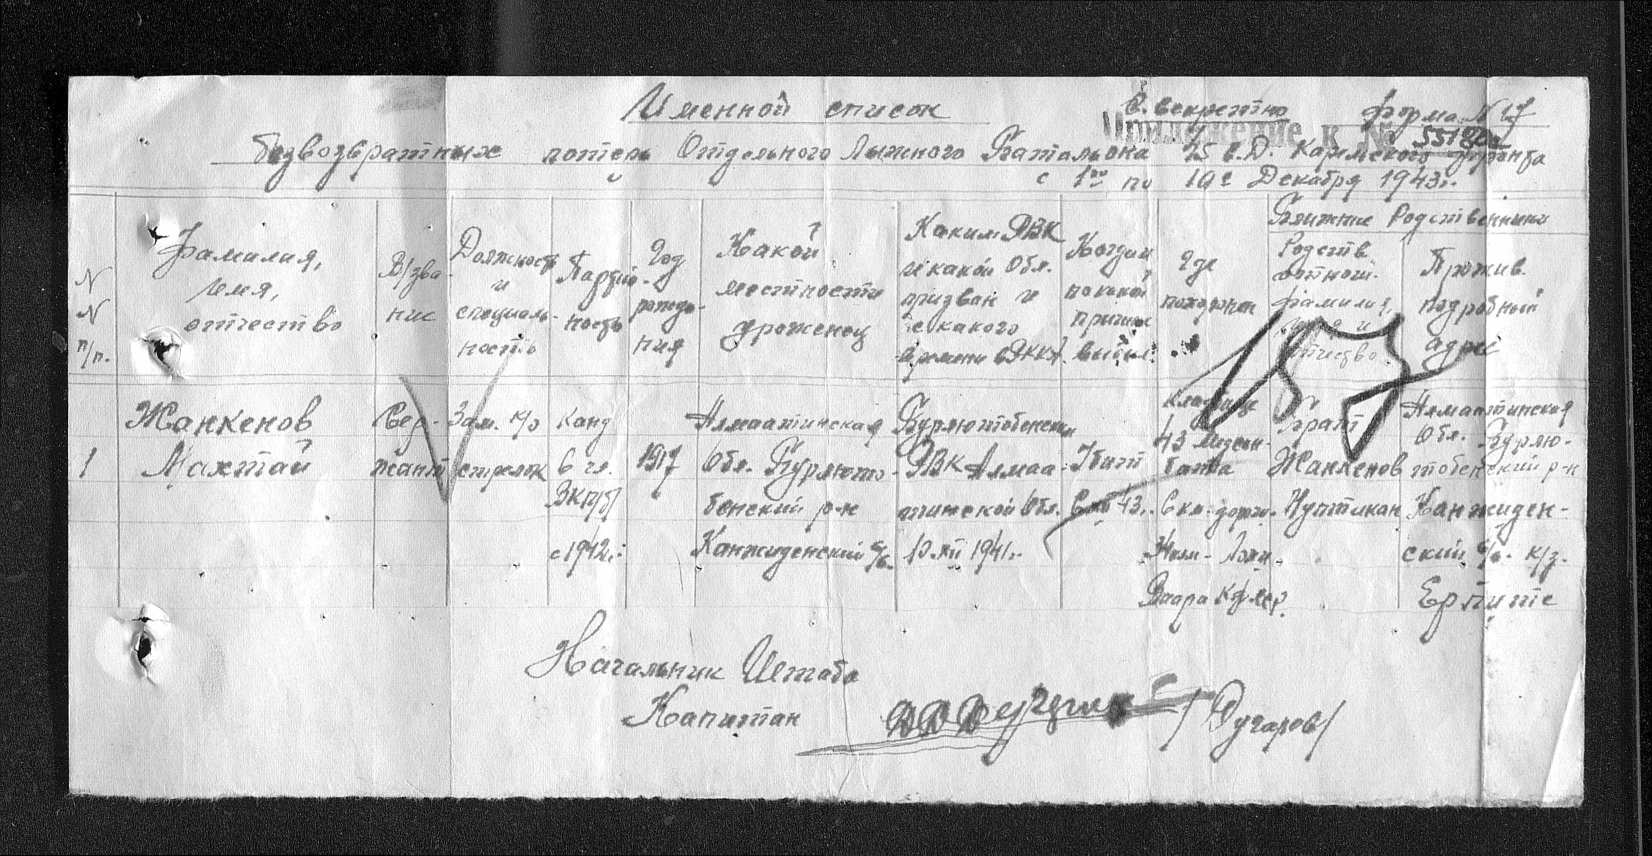 Именной список
С. секретно Форма № 17
Приложение к № 55180с
безвозвратных потерь Отдельного Лыжного Батальона 45 с.д. Карельского фронта
с 1го по 10е Декабря 1943г.
N N п/п.
Фамилия, имя, отчество
В/звание
Должность и специальность
Партийность
Год рождения
Какой местности уроженец
Каким РВК и какой Обл. призван и с какого времени в РККА.
Когда и по какой причине выбыл.
Где похоронен
Ближние Родственники
Родств. отнош. фамилия, имя и отчество
Прожив. подробный адрес
1
Жанкенов
Махтай
Сер-
жант
Зам. к/о
стрелок
Канд
Чл.
ВКП/б/
с 1942г.
1917
Алмаатинская
Обл. Бурлюто-
бенский р-н
Канжиденский с/с.
Бурлютобенский
РВК Алмаа-
тинской Обл.
10.XII 1941г.
Убит
43г.
Кладбище
43 Медсан-
батва
6 км.
Брат
Жанкенов
Алмаатинская
Обл. Бурлю-
тобенский р-н
Канжиден-
ский с/с. к/з.
Начальник Штаба
Капитан
157